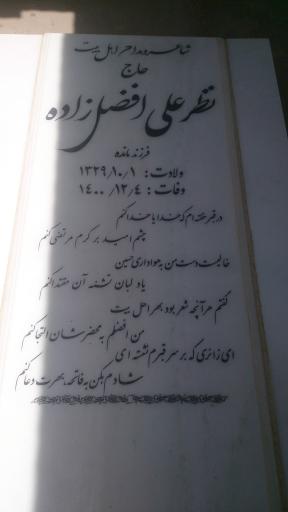 شاعر و مداح اهل بیت
حاج
نظر علی افضل زاده
فرزند مانده
ولادت: ۱۳۲۹/۱۰/۱
وفات: ۱۴۰۰/۱۲/۴
در قبر خفته ام که خدایا خدا کنم
چشم امید بر کرم مرتضی کنم
خالیست دست من به هواداری حسین
یاد لبان تشنه آن مقتدا کنم
گفتم هر آنچه شعر بود بهر اهل بیت
من افضلم به محضرشان التجا کنم
ای زائری که بر سر قبرم نشسته ای
شادم بکن به فاتحه بهرت دعا کنم